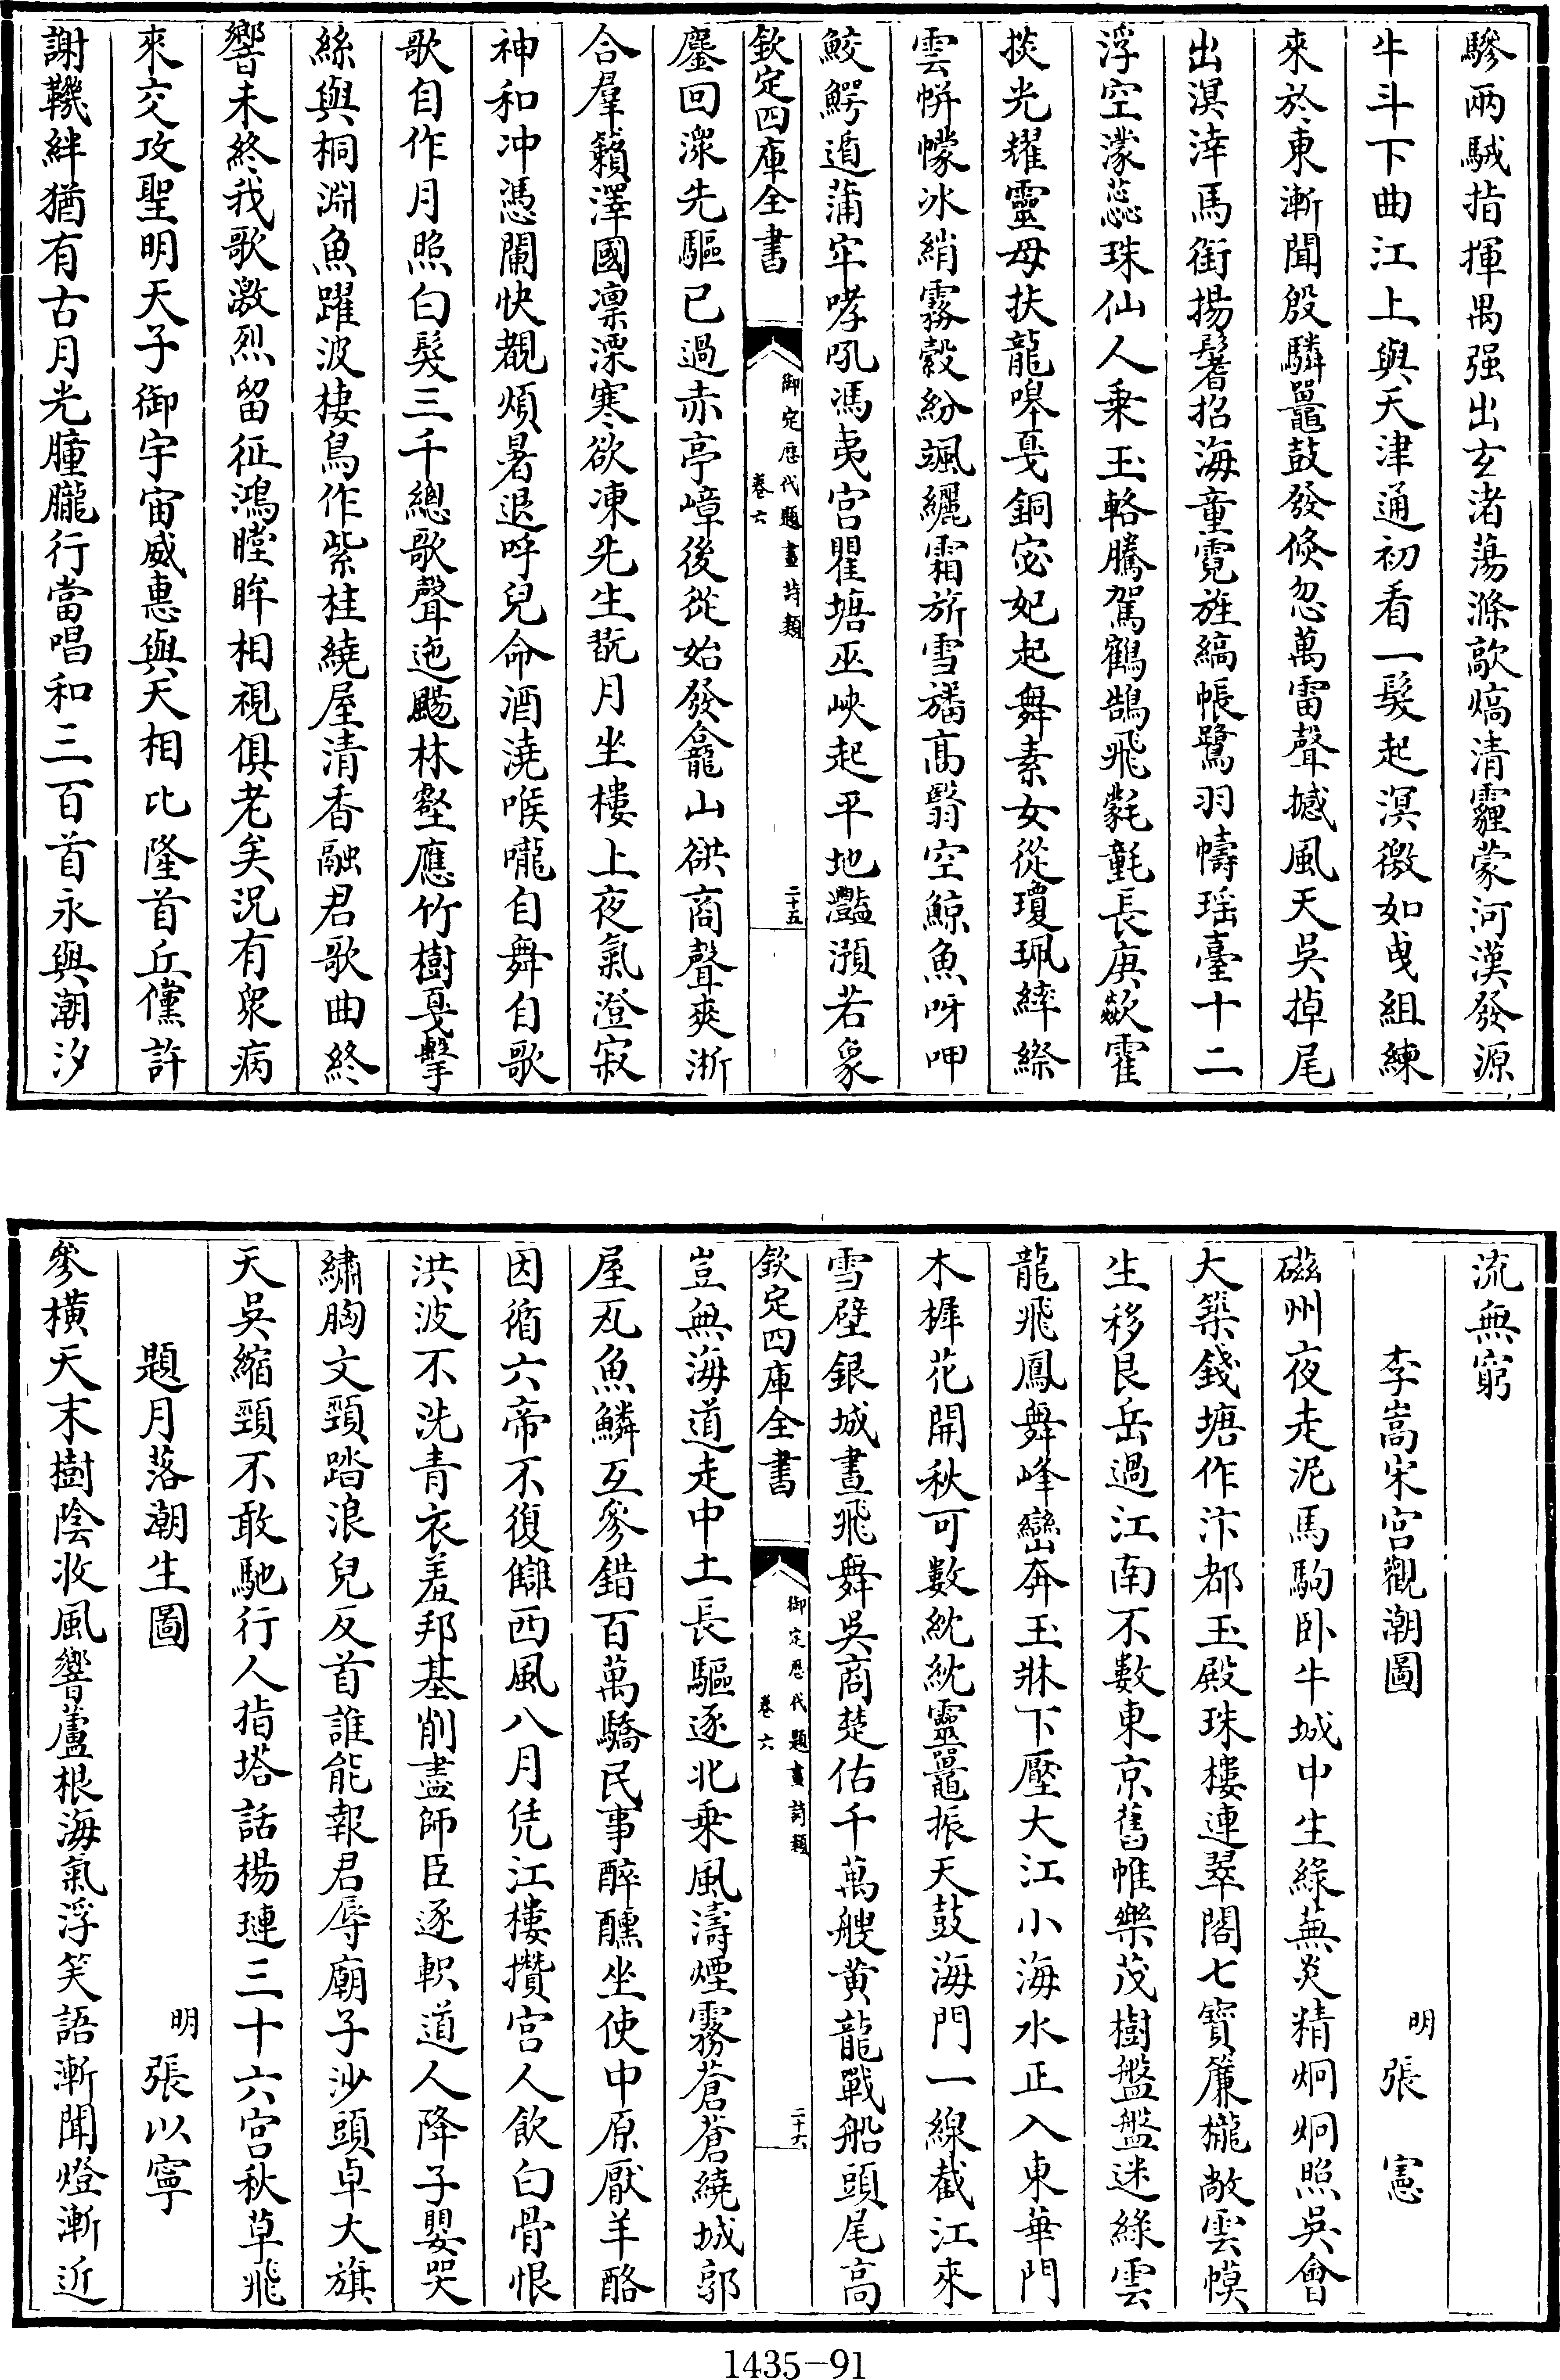 驂兩駥指揮禺强出玄渚蕩滌歊熇清霾蒙河漢發源
牛斗下曲江上與天津通初看一髮起溟徼如曵組練
來於東漸聞殷驎鼉鼓發倐忽萬雷聲撼風天吳掉尾
出溟涬馬銜揚鬐招海童霓旌縞帳鷺羽幬瑶臺十二
浮空濛蕊珠仙人乗玉輅騰駕鶴鵠飛氄𣯶長庚歘霍
掞光耀靈母扶龍嘷戛銅宓妃起舞素女從瓊珮綷縩
雲帡幪冰綃霧縠紛颯纚霜旂雪旛髙翳空鯨魚呀呷
鮫鰐遁蒲牢哮吼馮夷宫瞿塘巫峽起平地灩澦若象
欽定四庫全書
御定歴代題畫詩類
卷六
二十五
鏖回漩先驅已過赤亭嶂後從始發龕山谼商聲爽淅
合羣籟澤國凛溧寒欲凍先生翫月坐樓上夜氣澄寂
神和冲憑闌快覩煩暑退呼兒命酒澆喉嚨自舞自歌
歌自作月照白髮三千總歌聲迤颺林壑應竹樹戛擊
絲與桐淵魚躍波棲鳥作紫桂繞屋清香融君歌曲終
響未終我歌激烈留征鴻瞠眸相視俱老矣況有衆病
來交攻聖明天子御宇宙威惠與天相比隆首丘儻許
謝鞿絆猶有古月光朣朧行當唱和三百首永與潮汐
流無窮
李嵩宋宫觀潮圖
明張憲
磁州夜走泥馬駒卧牛城中生緑蕪炎精炯炯照吳會
大築錢塘作汴都玉殿珠樓連翠閣七寳簾櫳敞雲幙
生移艮岳過江南不數東京舊帷樂茂樹盤盤迷緑雲
龍飛鳳舞峰巒奔玉牀下壓大江小海水正入東華門
木樨花開秋可數紞紞靈鼉振天鼓海門一線截江來
雪壁銀城晝飛舞吳商楚估千萬艘黄龍戰船頭尾高
欽定四庫全書
御定歴代題畫詩類
卷六
二十六
豈無海道走中土長驅逐北乗風濤煙霧蒼蒼繞城郭
屋瓦魚鱗互參錯百萬驕民事醉醺坐使中原厭羊酪
因循六帝不復讎西風八月凭江樓攢宫人飲白骨恨
洪波不洗青衣羞邦基削盡師臣逐軹道人降子嬰哭
繡胸文頸踏浪兒反首誰能報君辱廟子沙頭卓大旗
天吳縮頸不敢馳行人指塔話楊璉三十六宫秋草飛
題月落潮生圖
明張以寧
參橫天末樹陰收風響蘆根海氣浮笑語漸聞燈漸近
1435-91